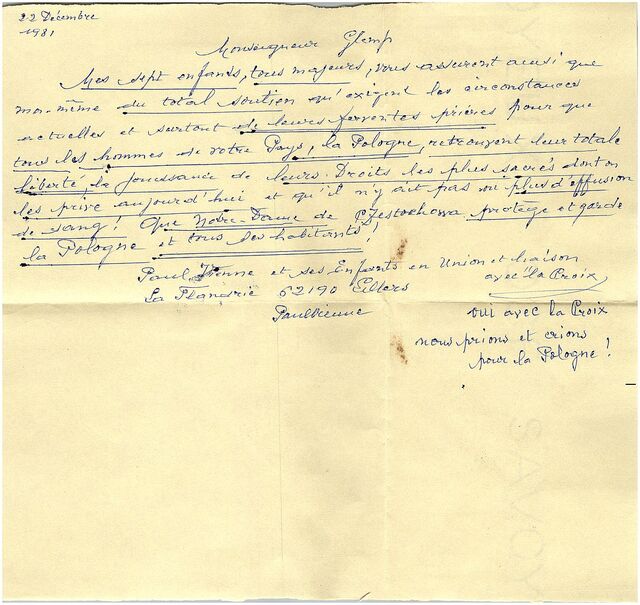 22 Décembre
1981
Monseigneur Glemp
Mes sept enfants, tous majeurs, vous assurent ainsi que
moi-même du total soutien qu'exigent les circonstances
actuelles et surtout de leurs ferventes prières pour que
tous les hommes de votre Pays, la Pologne, retrouvent leur totale
Liberté, la jouissance de leurs Droits les plus sacrés dont on
les prive aujourd'hui et qu'il n'y ait pas ou plus d'effusion
de sang! Que Notre-Dame de Czestochowa protège et garde
la Pologne et tous ses habitants!
Paul Vienne et ses Enfants en Union et liaison
avec la Croix
La Flandrie 62190 Lillers
Paul Vienne
oui avec la Croix
nous prions et crions
pour la Pologne!
SAVOY